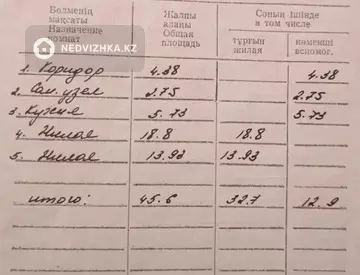 Бөлменің мақсаты Назначение комнат | Жалпы алаңы Общая площадь | Соның ішінде в том числе
тұрғын жилая | көмекші вспомог.
1. Коридор 4.38 4.38
2. Сан.узел 2.75 2.75
3. Кухня 5.73 5.73
4. Жилая 18.8 18.8
5. Жилая 13.93 13.93
итого: 45.6 32.7 12.9
NEDVIZHKA.KZ